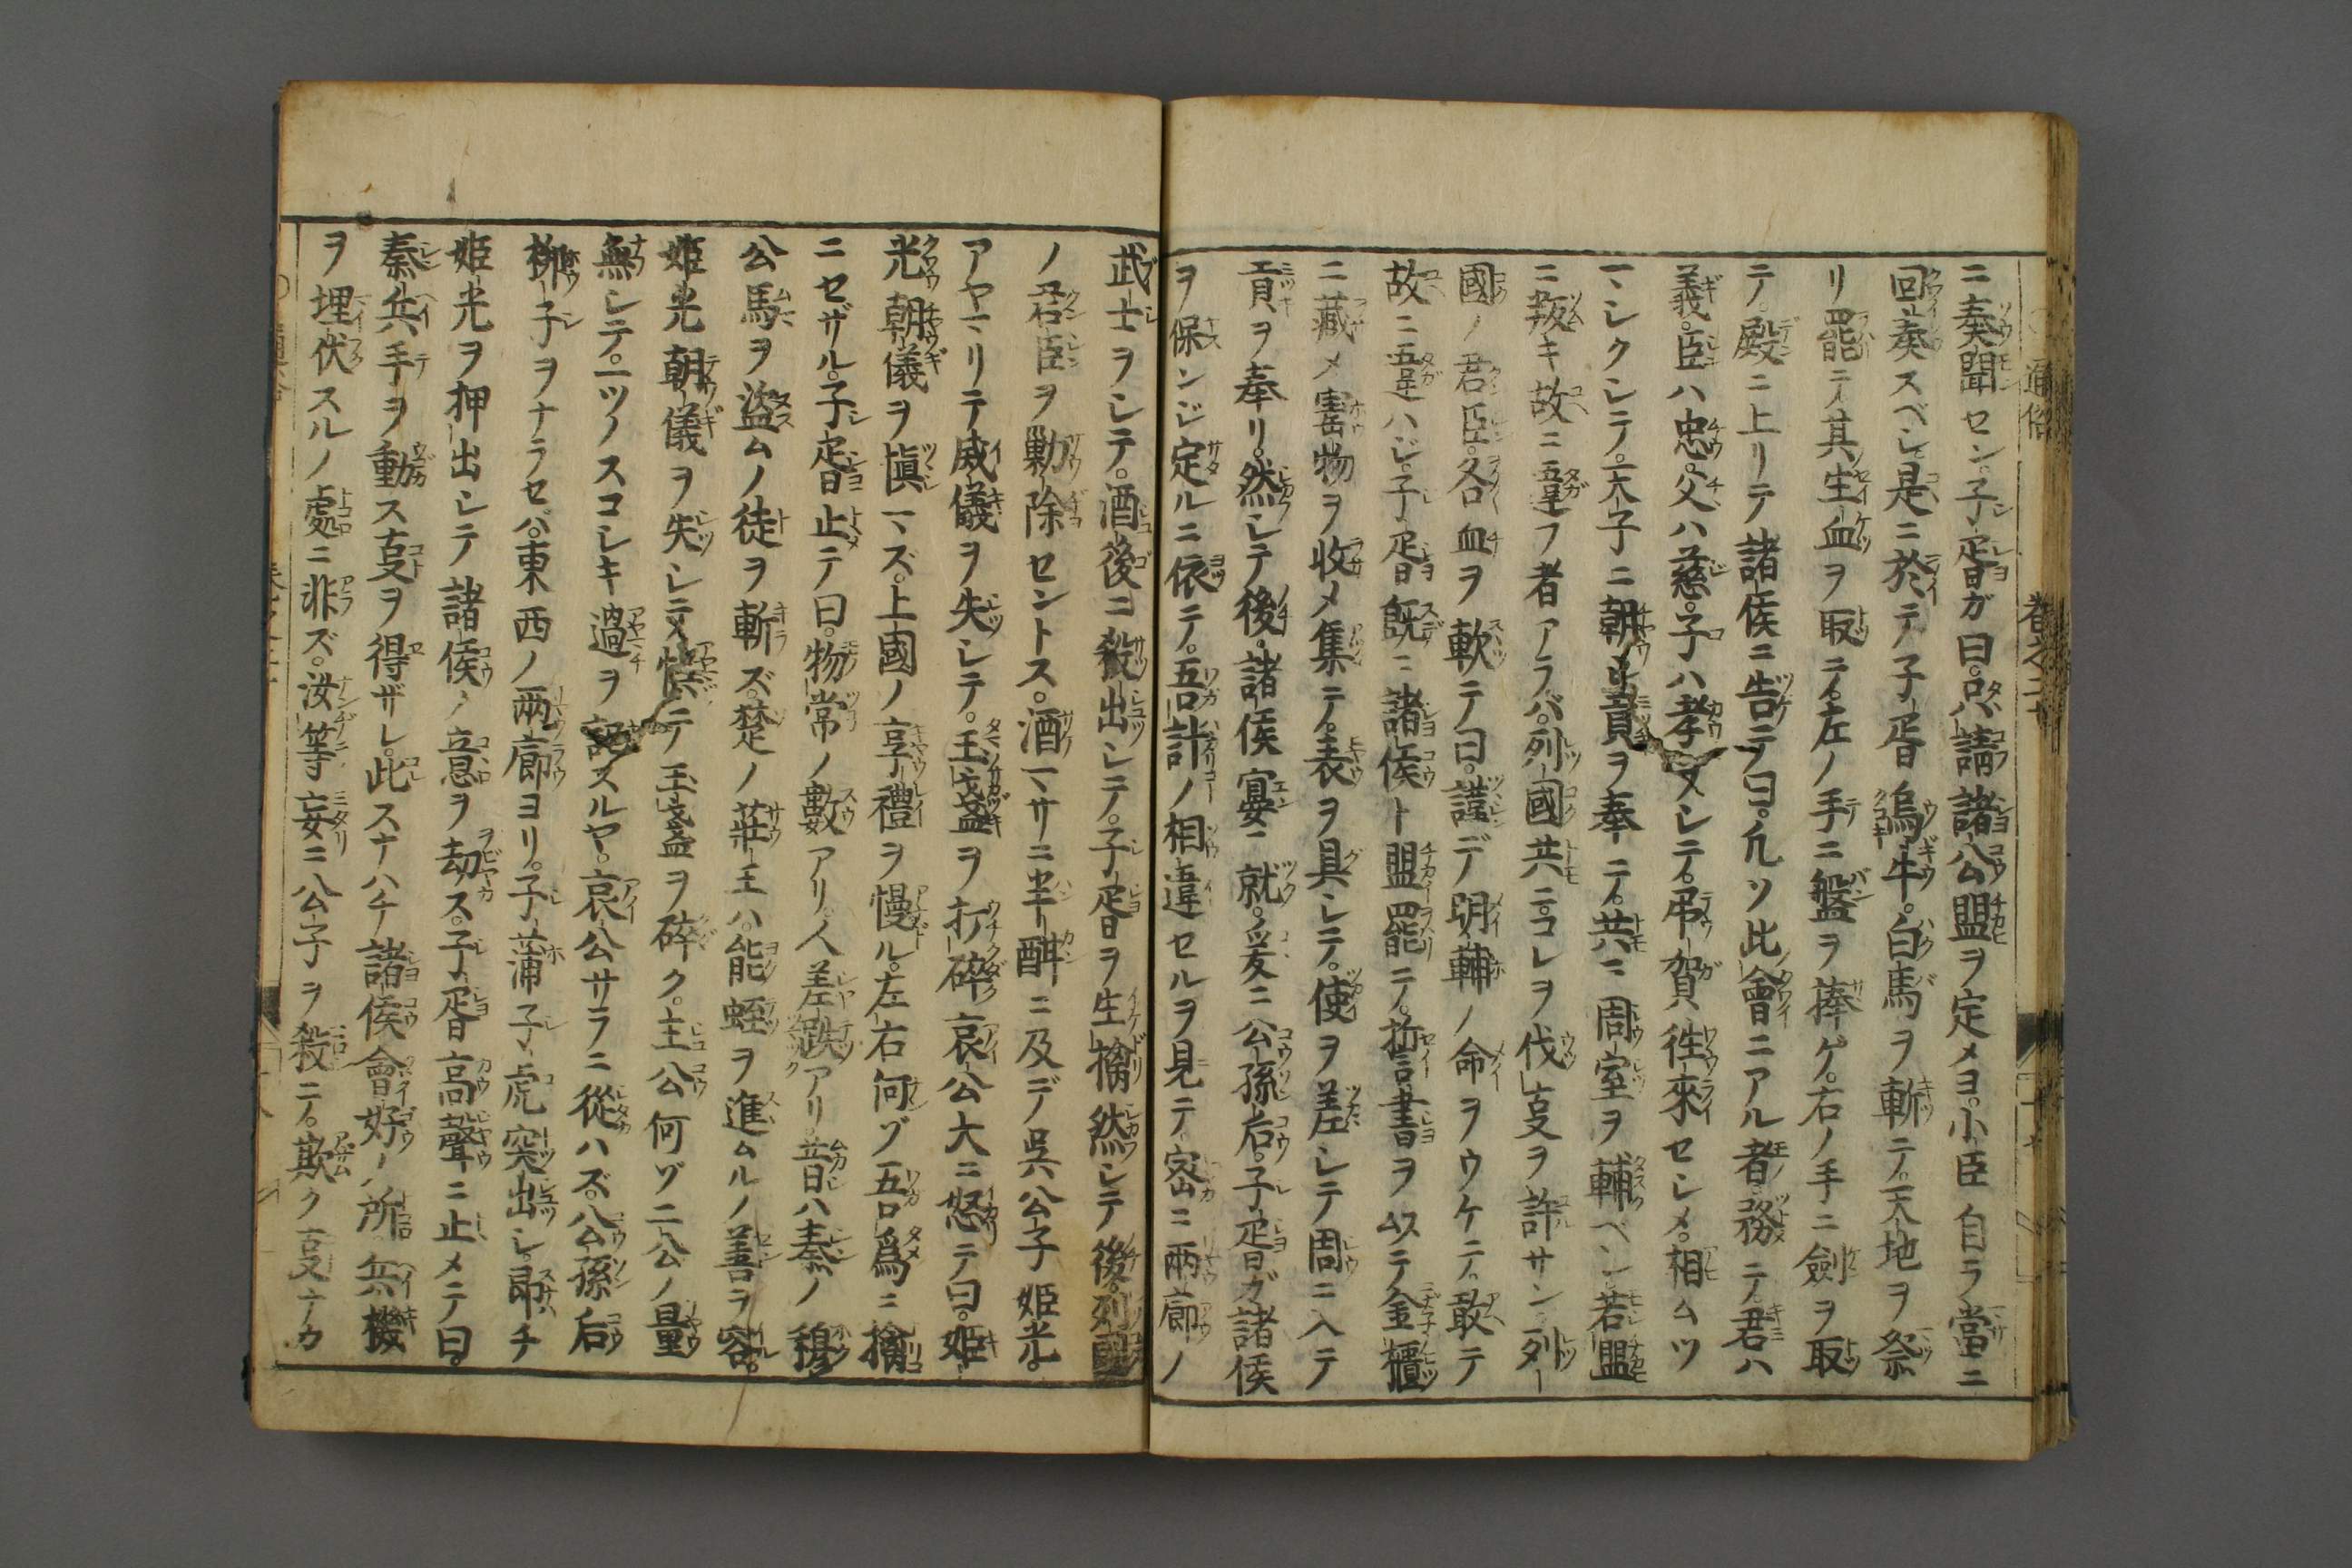 ニ奏聞セン。子胥ガ曰。只請諸公盟ヲ定メヨ。小臣自ラ當ニ
回奏スベシ。是ニ於テ子胥烏牛。白馬ヲ斬テ。天地ヲ祭
リ罷テ其生血ヲ取テ。左ノ手ニ盤ヲ捧ゲ。右ノ手ニ劍ヲ取
テ。殿ニ上リテ諸侯ニ告テ曰。凡ソ此會ニアル者務テ。君ハ
義。臣ハ忠。父ハ慈。子ハ孝ヲシテ。吊賀徃來セシメ。相ムツ
マシクシテ。天子ニ朝シ貢ヲ奉テ。共ニ周室ヲ輔ベシ若盟
ニ叛キ故ニ違フ者アラバ。列國共ニコレヲ伐事ヲ許サン列
國ノ君臣。各血ヲ軟テ曰。謹デ明輔ノ命ヲウケテ。敢テ
故ニ違ハジ。子胥既ニ諸侯ト盟罷テ。誓書ヲ以テ金櫃
ニ藏メ寳物ヲ收メ集テ。表ヲ具シテ。使ヲ差シテ周ニ入テ
貢ヲ奉リ。然シテ後。諸侯宴ニ就。爰ニ公孫后。子胥ガ諸侯
ヲ保ンジ定ルニ依テ。吾計ノ相違セルヲ見テ密ニ兩廊ノ
武士ヲシテ。酒後ニ殺出シテ。子胥ヲ生擒然シテ後。列國
ノ君臣ヲ勦除セントス。酒マサニ半酣ニ及デ呉公子姫光。
アヤマリテ威儀ヲ失シテ。玉盞ヲ打碎哀公大ニ怒テ曰。姫
光朝儀ヲ愼マズ。上國ノ享禮ヲ慢ル。左右何ゾ吾爲ニ擒
ニセザル。子胥止テ曰。物常ノ數アリ。人差跌アリ。昔ハ秦ノ穆
公馬ヲ盗ムノ徒ヲ斬ズ。楚ノ莊王ハ。能蛭ヲ進ムルノ善ヲ容。
姫光朝儀ヲ失シテ又悞テ玉盞ヲ碎ク。主公何ゾ二公ノ量
無シテ。一ツノスコシキ過ヲ記スルヤ。哀公サラニ從ハズ。公孫后
梆子ヲナラセバ。東西ノ兩廊ヨリ。子蒲子虎突出シ。即チ
姫光ヲ押出シテ諸侯ノ意ヲ劫ス。子胥高聲ニ止メテ曰。
秦兵手ヲ動ス事ヲ得ザレ。此スナハチ諸侯會好ノ所兵機
ヲ埋伏スルノ處ニ非ズ。汝等妄ニ公子ヲ殺テ。欺ク事ナカ